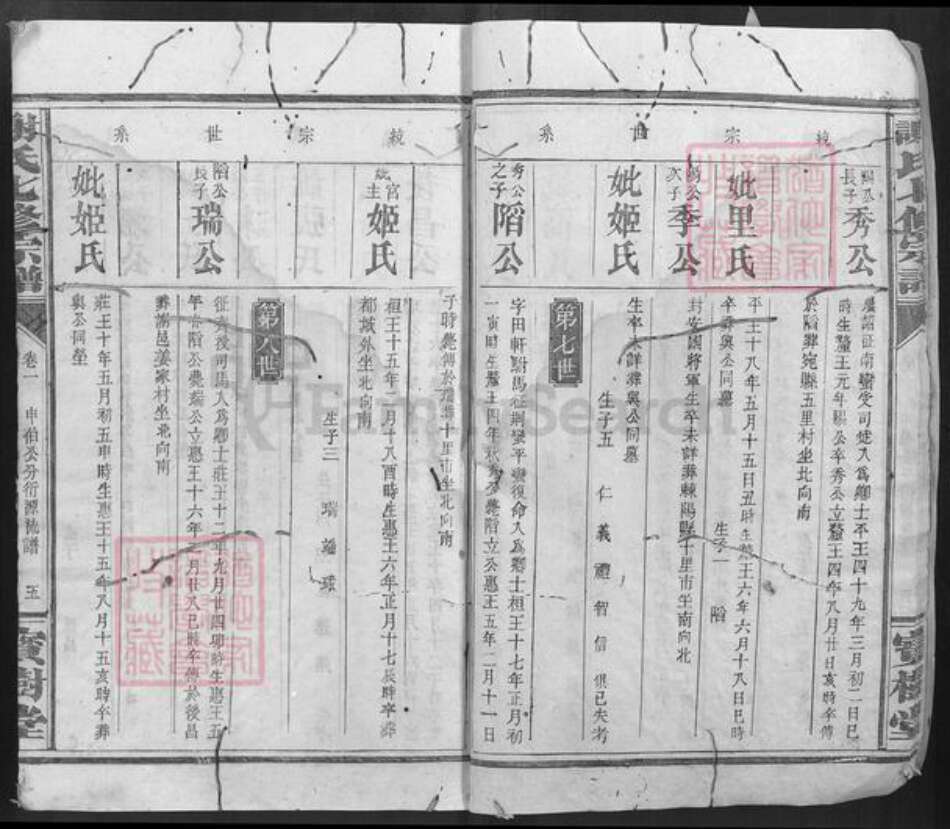 謝氏七修宗譜
寶樹堂
統宗世系
賜公長子
秀公
屢諸征南蠻受司徒入為鄉士平王四十九年三月初二日巳
時生釐王元年賜公卒秀公立釐王四年八月廿日亥時卒傳
於𨺗葬宛縣五里村坐北向南
妣里氏
平王十八年五月十五日丑時生惠王六年六月十八日巳時
卒葬與公同墓
生子一
賜公次子
季公
封安國將軍生卒未詳葬棘陽縣十里市坐南向北
妣姬氏
生卒未詳葬與公同墓
生子五 仁 義 禮 智 信 俱已失考
第七世
秀公之子
滔公
字田軒駙馬征荊蠻平蠻復命入為鄉士桓王十七年正月初
一寅時生釐王四年秋秀公薨滔立公惠王五年二月十一日
子時薨傳於瑞葬十里市坐北向南
姬氏
桓王十五年二月十八酉時生惠王六年正月十七辰時卒葬
都城外坐北向南
生子三 瑞 瑞 球
第八世
長子
瑞公
征齊後司馬入為鄉士莊王十二年九月廿四卯時生惠王五
年春滔公薨瑞公立惠王十六年二月廿八巳時卒傳於後昌
葬謝邑姜家村坐北向南
妣姬氏
莊王十年五月初五申時生惠王十五年八月十五亥時卒葬
與公同塋
統宗世系
謝氏七修宗譜
卷一
申伯公分衍源流譜
五
寶樹堂
FamilySearch